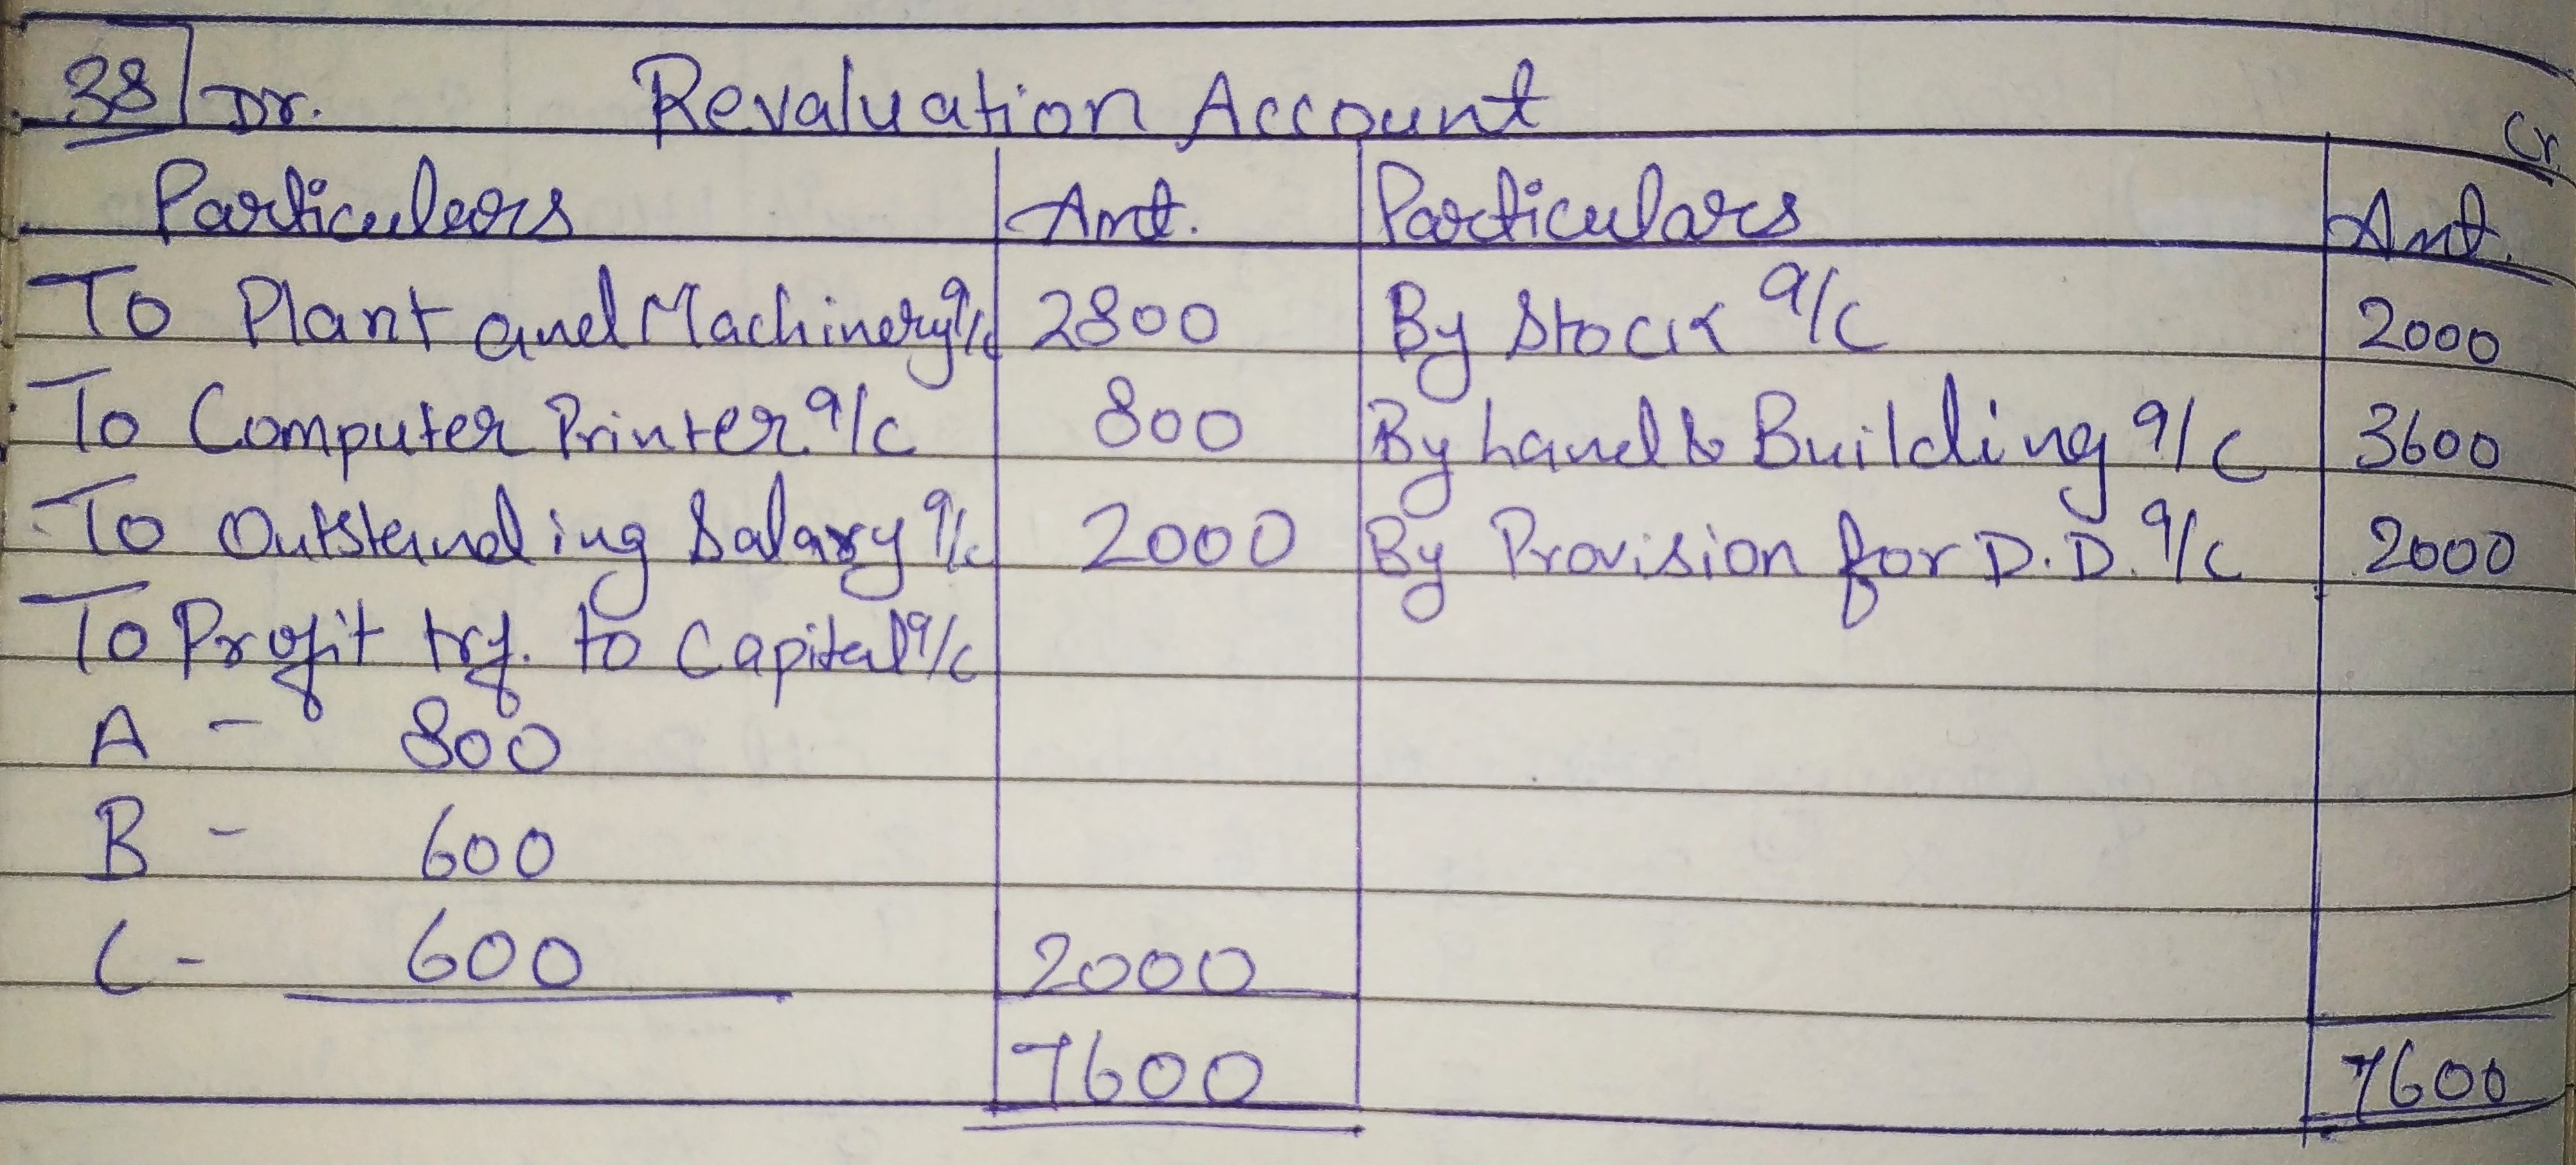 38 Dr. Revaluation Account Cr.
Particulars Amt. Particulars Amt.
To Plant and Machinery a/c 2800 By Stock a/c 2000
To Computer Printer a/c 800 By Land & Building a/c 3600
To Outstanding Salary a/c 2000 By Provision for D.D. a/c 2000
To Profit trf. to Capital a/c
A - 800
B - 600
C - 600 2000
7600 7600